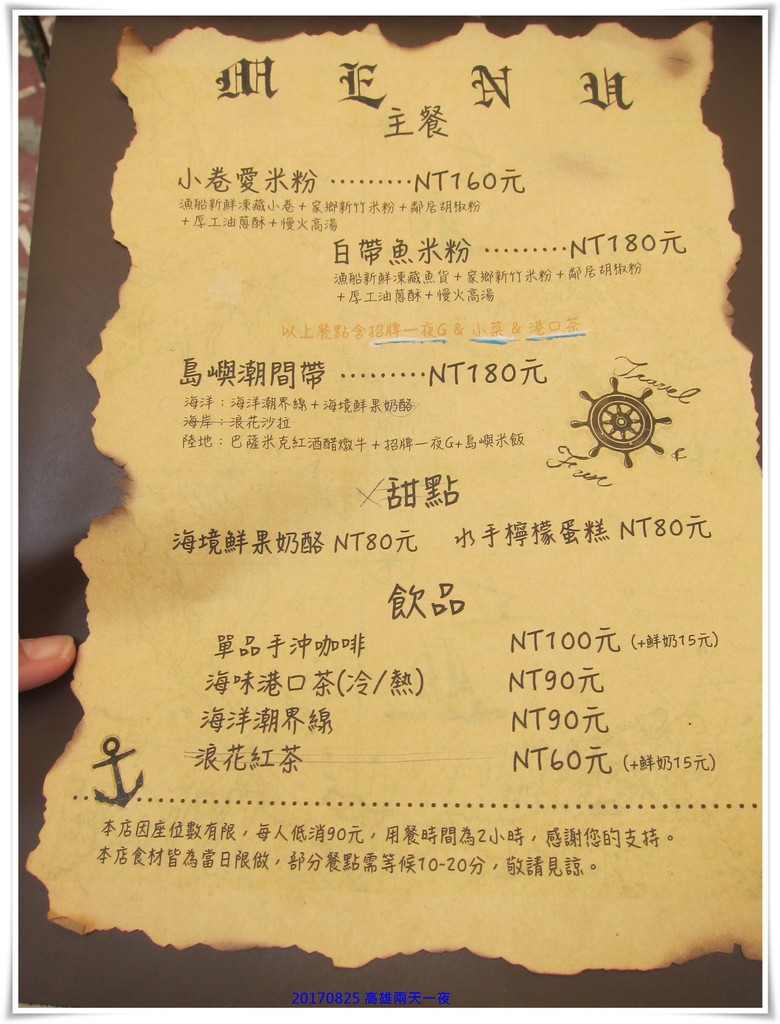 MENU
主餐
小卷愛米粉 ·········NT160元
漁船新鮮凍藏小卷+家鄉新竹米粉+鄰居胡椒粉
+厚工油蔥酥+慢火高湯
白帶魚米粉 ·········NT180元
漁船新鮮凍藏魚貨+家鄉新竹米粉+鄰居胡椒粉
+厚工油蔥酥+慢火高湯
以上餐點含招牌一夜G & 小菜 & 港口茶
島嶼潮間帶 ·········NT180元
海洋：海洋潮界線+海境鮮果奶酪
海岸：浪花沙拉
陸地：巴薩米克紅酒醋燉牛+招牌一夜G+島嶼米飯
Travel
&
Fun
甜點
海境鮮果奶酪 NT80元 水手檸檬蛋糕 NT80元
飲品
單品手沖咖啡 NT100元 (+鮮奶15元)
海味港口茶(冷/熱) NT90元
海洋潮界線 NT90元
浪花紅茶 NT60元 (+鮮奶15元)
本店因座位數有限，每人低消90元，用餐時間為2小時，感謝您的支持。
本店食材皆為當日限做，部分餐點需等候10-20分，敬請見諒。
20170825 高雄兩天一夜